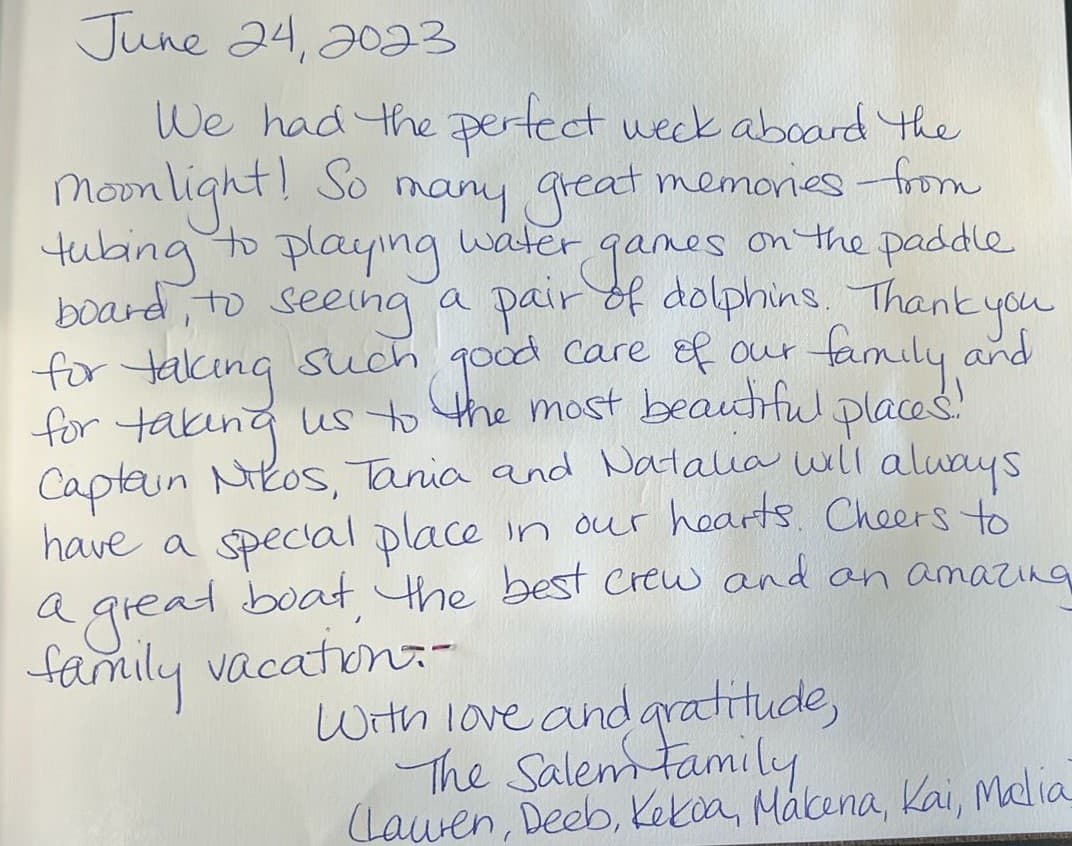 June 24, 2023
We had the perfect week aboard the
Moonlight! So many great memories - from
tubing to playing water games on the paddle
board, to seeing a pair of dolphins. Thank you
for taking such good care of our family and
for taking us to the most beautiful places!
Captain Nikos, Tania and Natalia will always
have a special place in our hearts. Cheers to
a great boat, the best crew and an amazing
family vacation.
With love and gratitude,
The Salem Family
(Lauren, Deeb, Kekoa, Makena, Kai, Malia